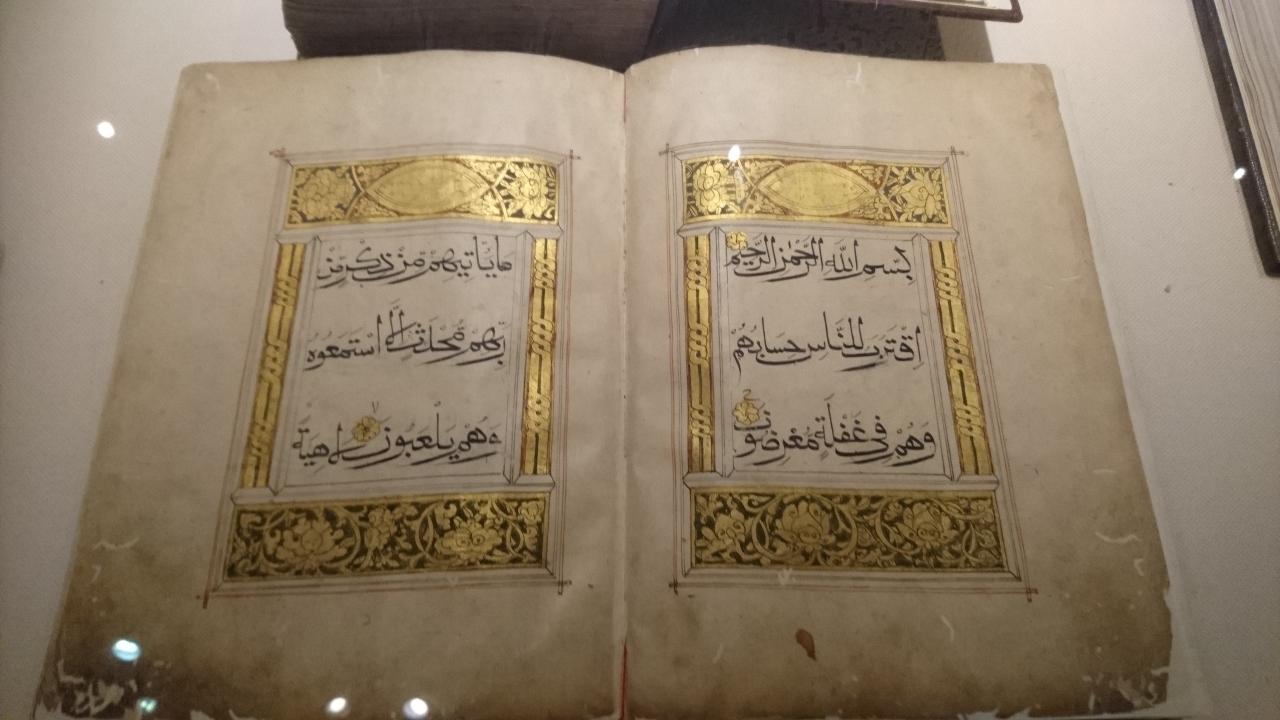 بِسْمِ اللَّهِ الرَّحْمٰنِ الرَّحِيمِ
اِقْتَرَبَ لِلنَّاسِ حِسَابُهُمْ
وَهُمْ فِي غَفْلَةٍ مُعْرِضُونَ
مَا يَأْتِيهِمْ مِنْ ذِكْرٍ مِنْ
رَبِّهِمْ مُحْدَثٍ إِلَّا اسْتَمَعُوهُ
وَهُمْ يَلْعَبُونَ لَاهِيَةً